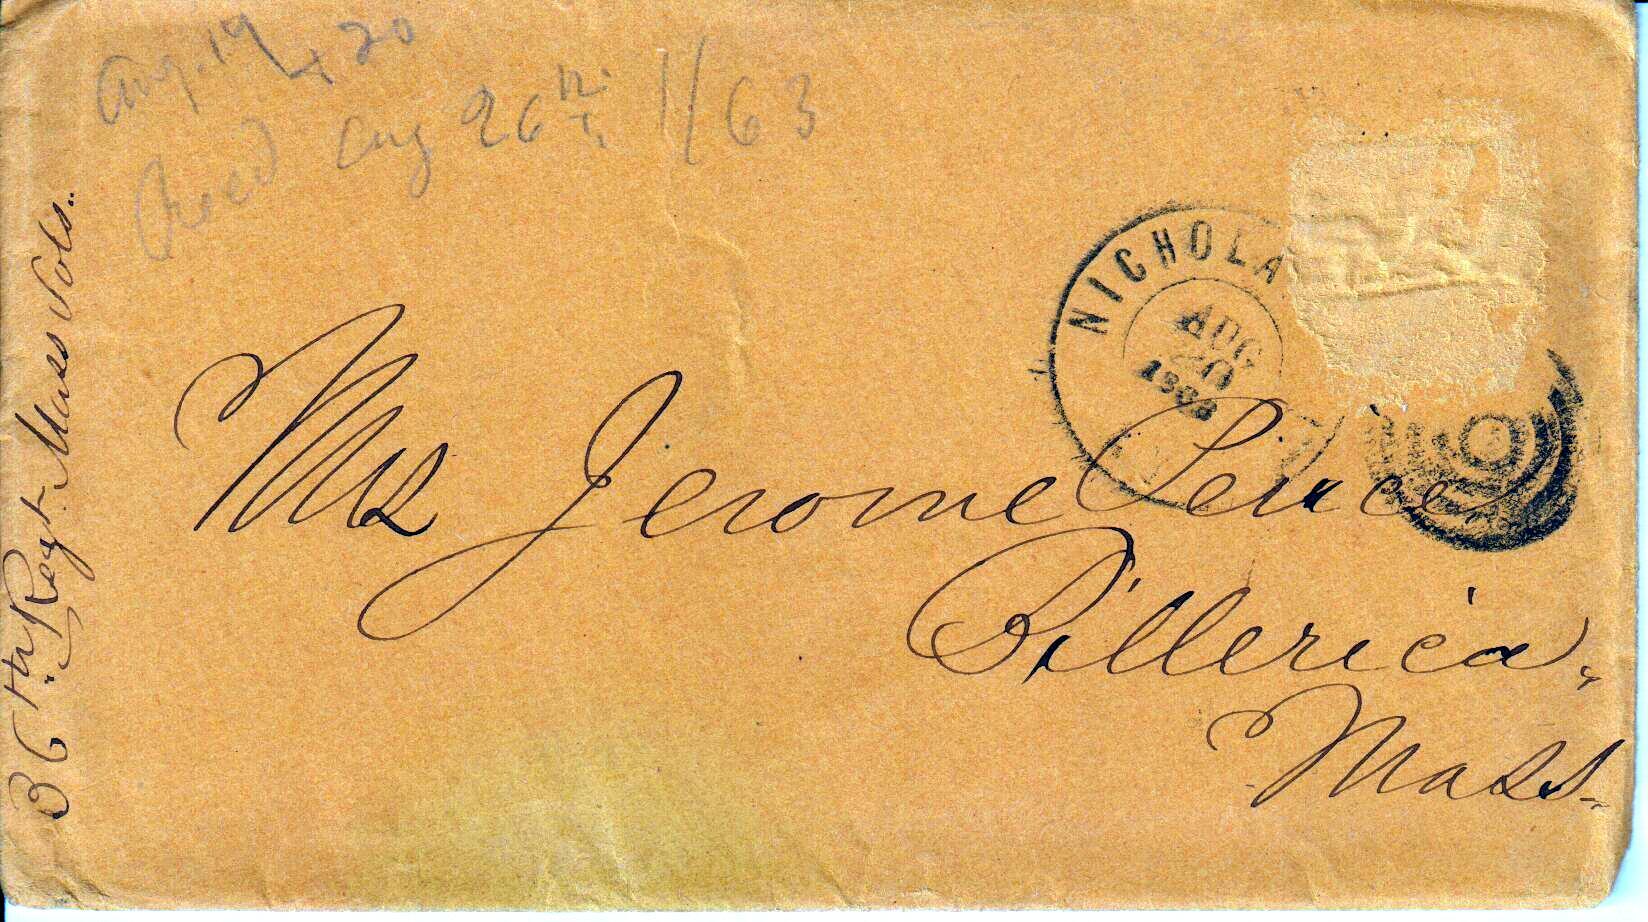 Aug. 19 & 20
Recd Aug 26th /63
36th Regt. Mass Vols.
NICHOLA
AUG
20
1863
Mrs Jerome Peirce
Billerica,
Mass.